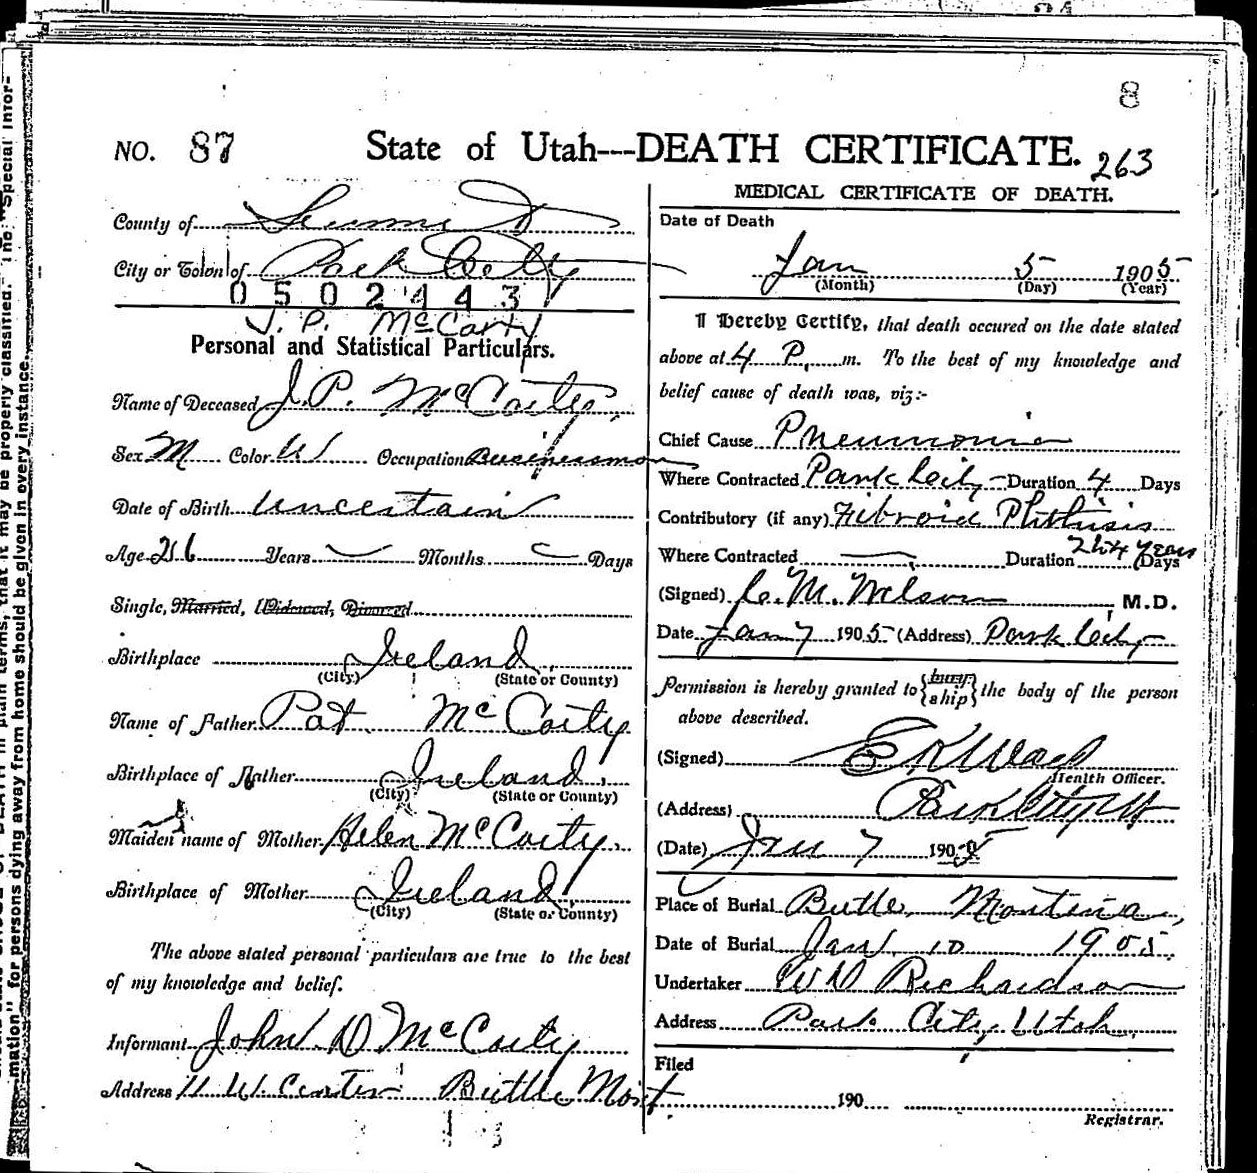 8
NO. 87 State of Utah---DEATH CERTIFICATE. 263
County of Summit
City or Town of Park City
0 5 0 2 4 4 3
J. P. McCarty
Personal and Statistical Particulars.
Name of Deceased J. P. McCarty,
Sex M Color W Occupation Businessman
Date of Birth uncertain
Age 26 Years Months Days
Single, Married, Widowed, Divorced
Birthplace Ireland
(City) (State or County)
Name of Father Pat McCarty
Birthplace of Father Ireland
(City) (State or County)
Maiden name of Mother Helen McCarty.
Birthplace of Mother Ireland
(City) (State or County)
The above stated personal particulars are true to the best
of my knowledge and belief.
Informant John D McCarty
Address 11 W. Center Butte Mont
MEDICAL CERTIFICATE OF DEATH.
Date of Death
Jan 5 1905
(Month) (Day) (Year)
I Hereby Certify, that death occured on the date stated
above at 4 P. m. To the best of my knowledge and
belief cause of death was, viz:-
Chief Cause Pneumonia
Where Contracted Park City Duration 4 Days
Contributory (if any) Fibroid Phthisis
Where Contracted Duration Years Days
(Signed) C. M. Wilson, M.D.
Date Jan 7 1905 (Address) Park City
Permission is hereby granted to {bury ship} the body of the person
above described.
(Signed)
Health Officer.
(Address) Park City Ut
(Date) Jan 7 1905
Place of Burial Butte, Montana,
Date of Burial Jan 10 1905.
Undertaker W D Richardson
Address Park City, Utah.
Filed
190
Registrar.
mation" for persons dying away from home should be given in every instance.